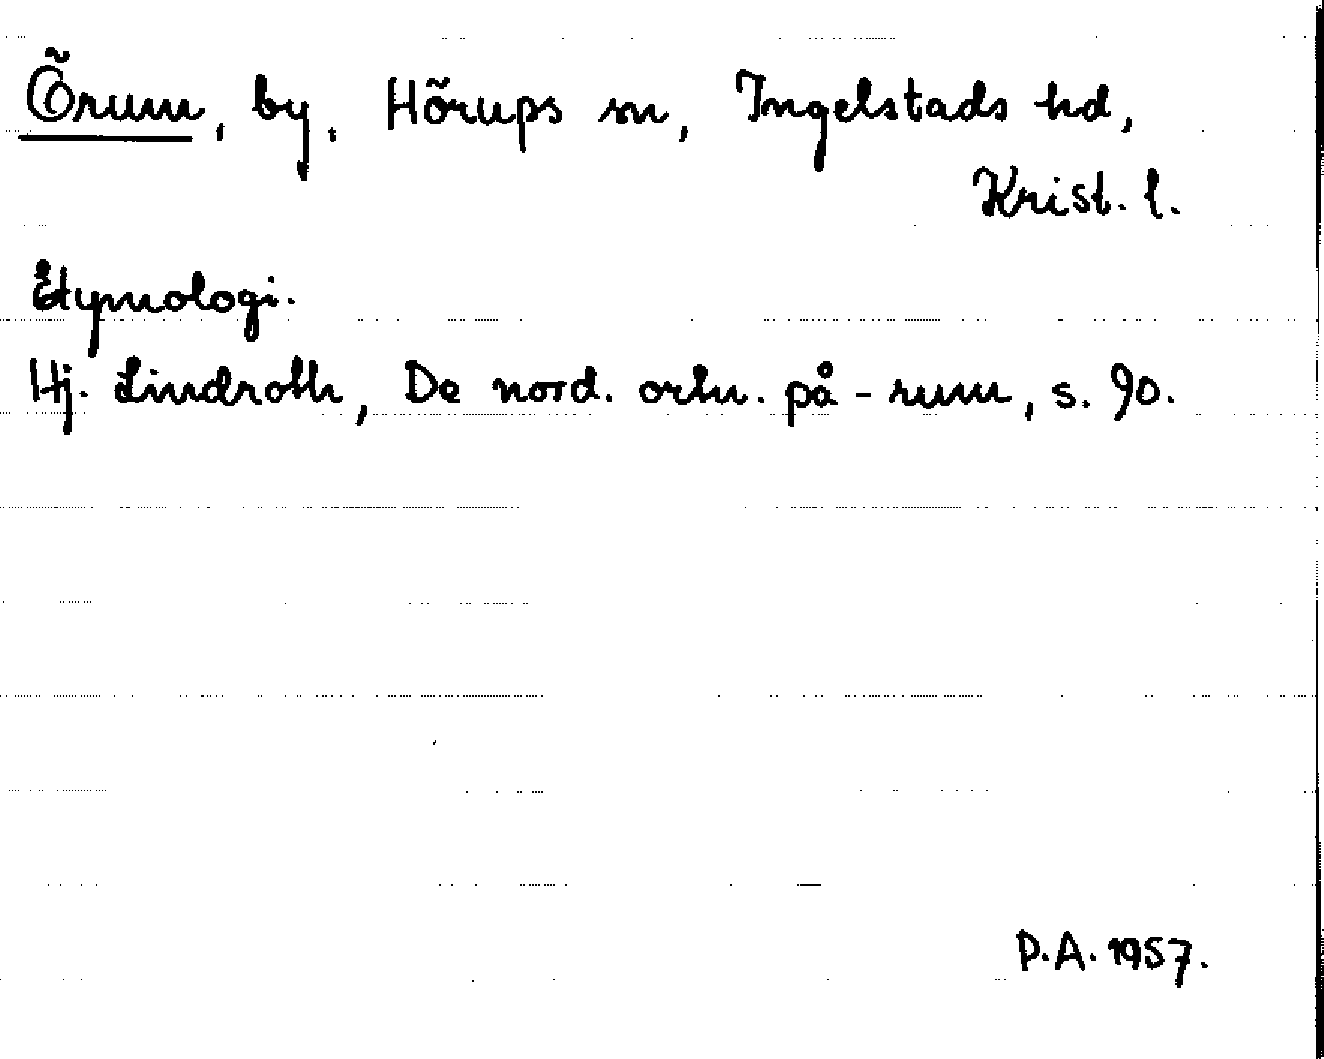 Örum, by, Hörups sn, Ingelstads hd,
Krist. l.
Etymologi.
Hj. Lindroth, De nord. ortn. på -rum, s. 90.
P.A. 1957.